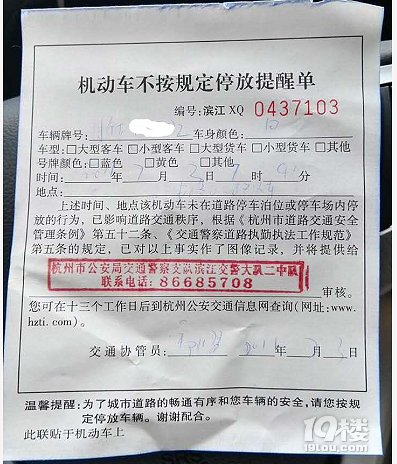 机动车不按规定停放提醒单
编号:滨江 XQ 0437103
车辆牌号: 车身颜色:
车型:□大型客车 □小型客车 □大型货车 □小型货车 □其他
号牌颜色:□蓝色 □黄色 □其他
时间: 年 月 日 时 分
地点:
上述时间、地点该机动车未在道路停车泊位或停车场内停
放的行为,已影响道路交通秩序,根据《杭州市道路交通安全
管理条例》第五十二条、《交通警察道路执勤执法工作规范》
第五条的规定,已对以上事实作了图像记录,并将提供给
杭州市公安局交通警察支队滨江交警大队二中队
联系电话:86685708
审核。
您可在十三个工作日后到杭州公安交通信息网查询(网址:www.
hzti.com)。
交通协管员: 2016 年 7 月 3 日
温馨提醒:为了城市道路的畅通有序和您车辆的安全,请您按规
定停放车辆。谢谢配合。
此联贴于机动车上
19楼
19lou.com